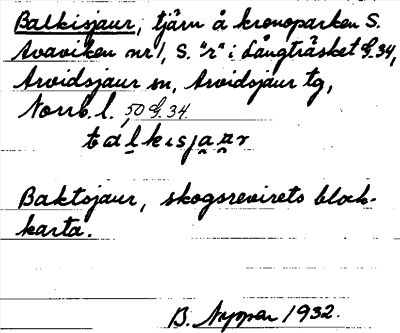 Balkisjaur, tjärn å kronoparken S.
Avaviken nr 1, S. "r" i Långträsket G.34,
Arvidsjaur sn, Arvidsjaur tg,
Norrb. l. 50 G.34.
Baktsjaur, skogsrevirets block-
karta.
B. 1932.